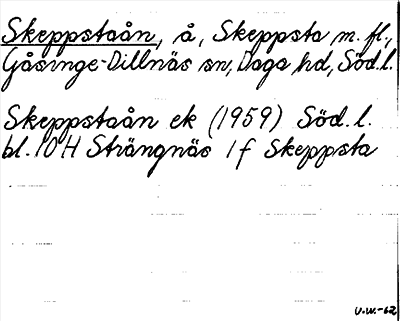 Skeppstaån, å, Skeppsta m. fl.,
Gåsinge-Dillnäs sn, Daga hd, Söd.l.
Skeppstaån ek (1959) Söd. l.
bl. 10 H Strängnäs 1 f Skeppsta
U.W.-62